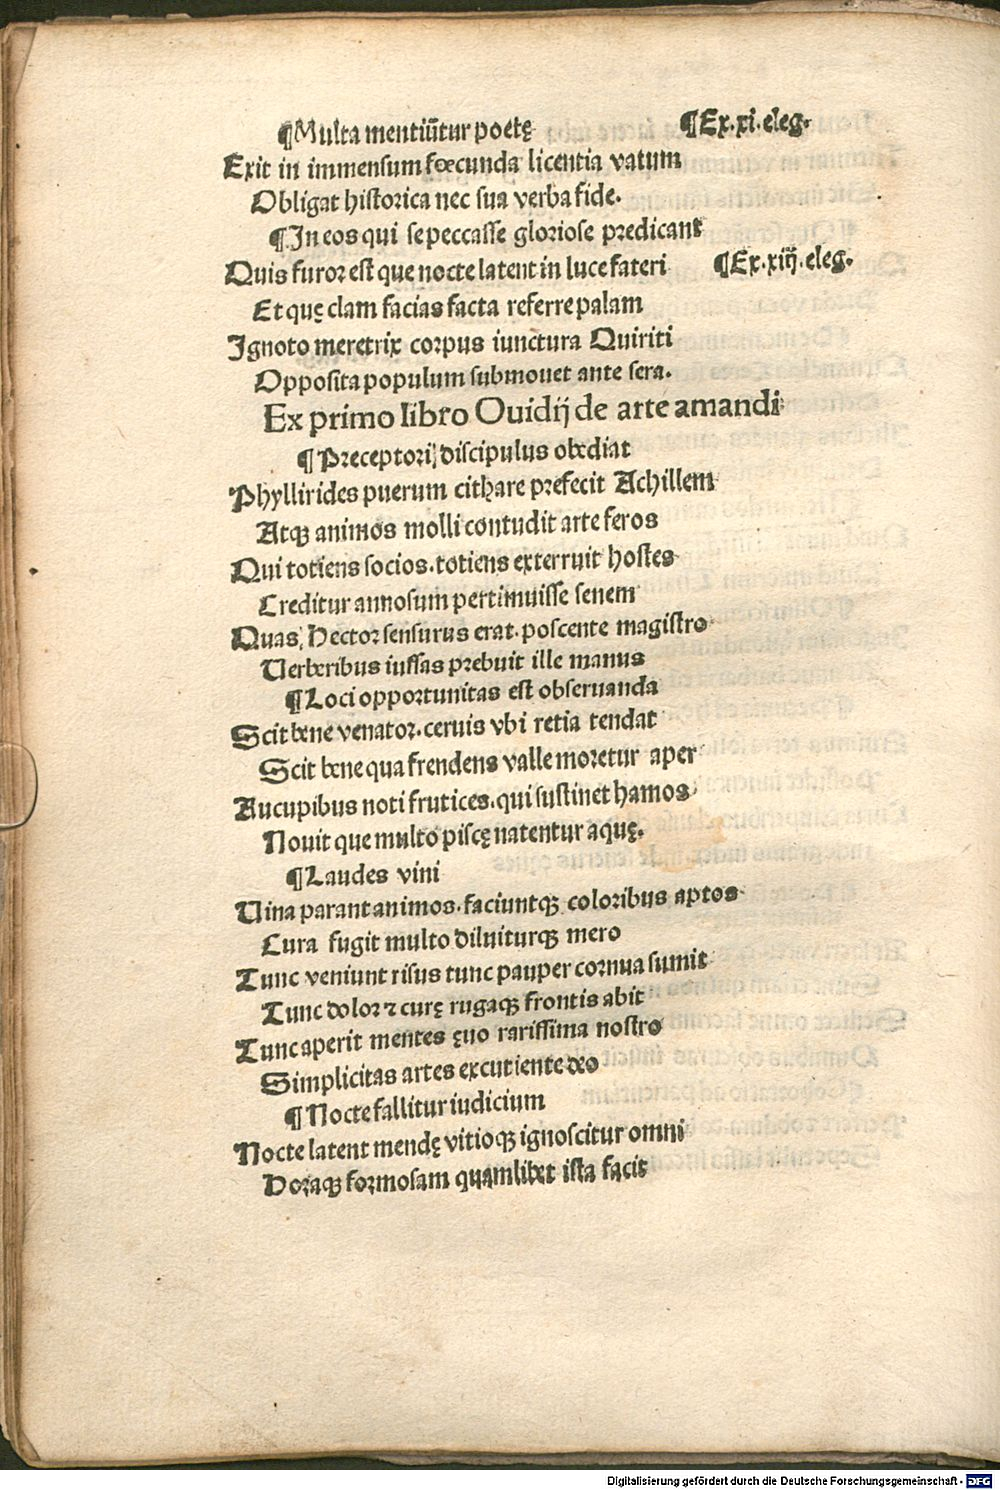 ¶Multa mentiūtur poetę ¶Ex.xi.eleg.
Exit in immensum fœcunda licentia vatum
Obligat historica nec sua verba fide.
¶In eos qui se peccasse gloriose predicant
Quis furor est que nocte latent in luce fateri ¶Ex.xiij.eleg.
Et quę clam facias facta referre palam
Ignoto meretrix corpus iunctura Quiriti
Opposita populum submouet ante sera.
Ex primo libro Ouidij de arte amandi
¶Preceptori discipulus obediat
Phyllirides puerum cithare prefecit Achillem
Atqꝫ animos molli contudit arte feros
Qui totiens socios.totiens exterruit hostes
Creditur annosum pertimuisse senem
Quas Hector sensurus erat.poscente magistro
Uerberibus iussas prebuit ille manus
¶Loci opportunitas est obseruanda
Scit bene venator.ceruis vbi retia tendat
Scit bene qua frendens valle moretur aper
Aucupibus noti frutices.qui sustinet hamos
Nouit que multo piscę natentur aquę.
¶Laudes vini
Uina parant animos.faciuntqꝫ coloribus aptos
Cura fugit multo diluiturqꝫ mero
Tunc veniunt risus tunc pauper cornua sumit
Tunc dolor ⁊ curę rugaqꝫ frontis abit
Tunc aperit mentes ęuo rarissima nostro
Simplicitas artes excutiente deo
¶Nocte fallitur iudicium
Nocte latent mendę vitioqꝫ ignoscitur omni
Horaqꝫ formosam quamlibet ista facit
Digitalisierung gefördert durch die Deutsche Forschungsgemeinschaft - DFG